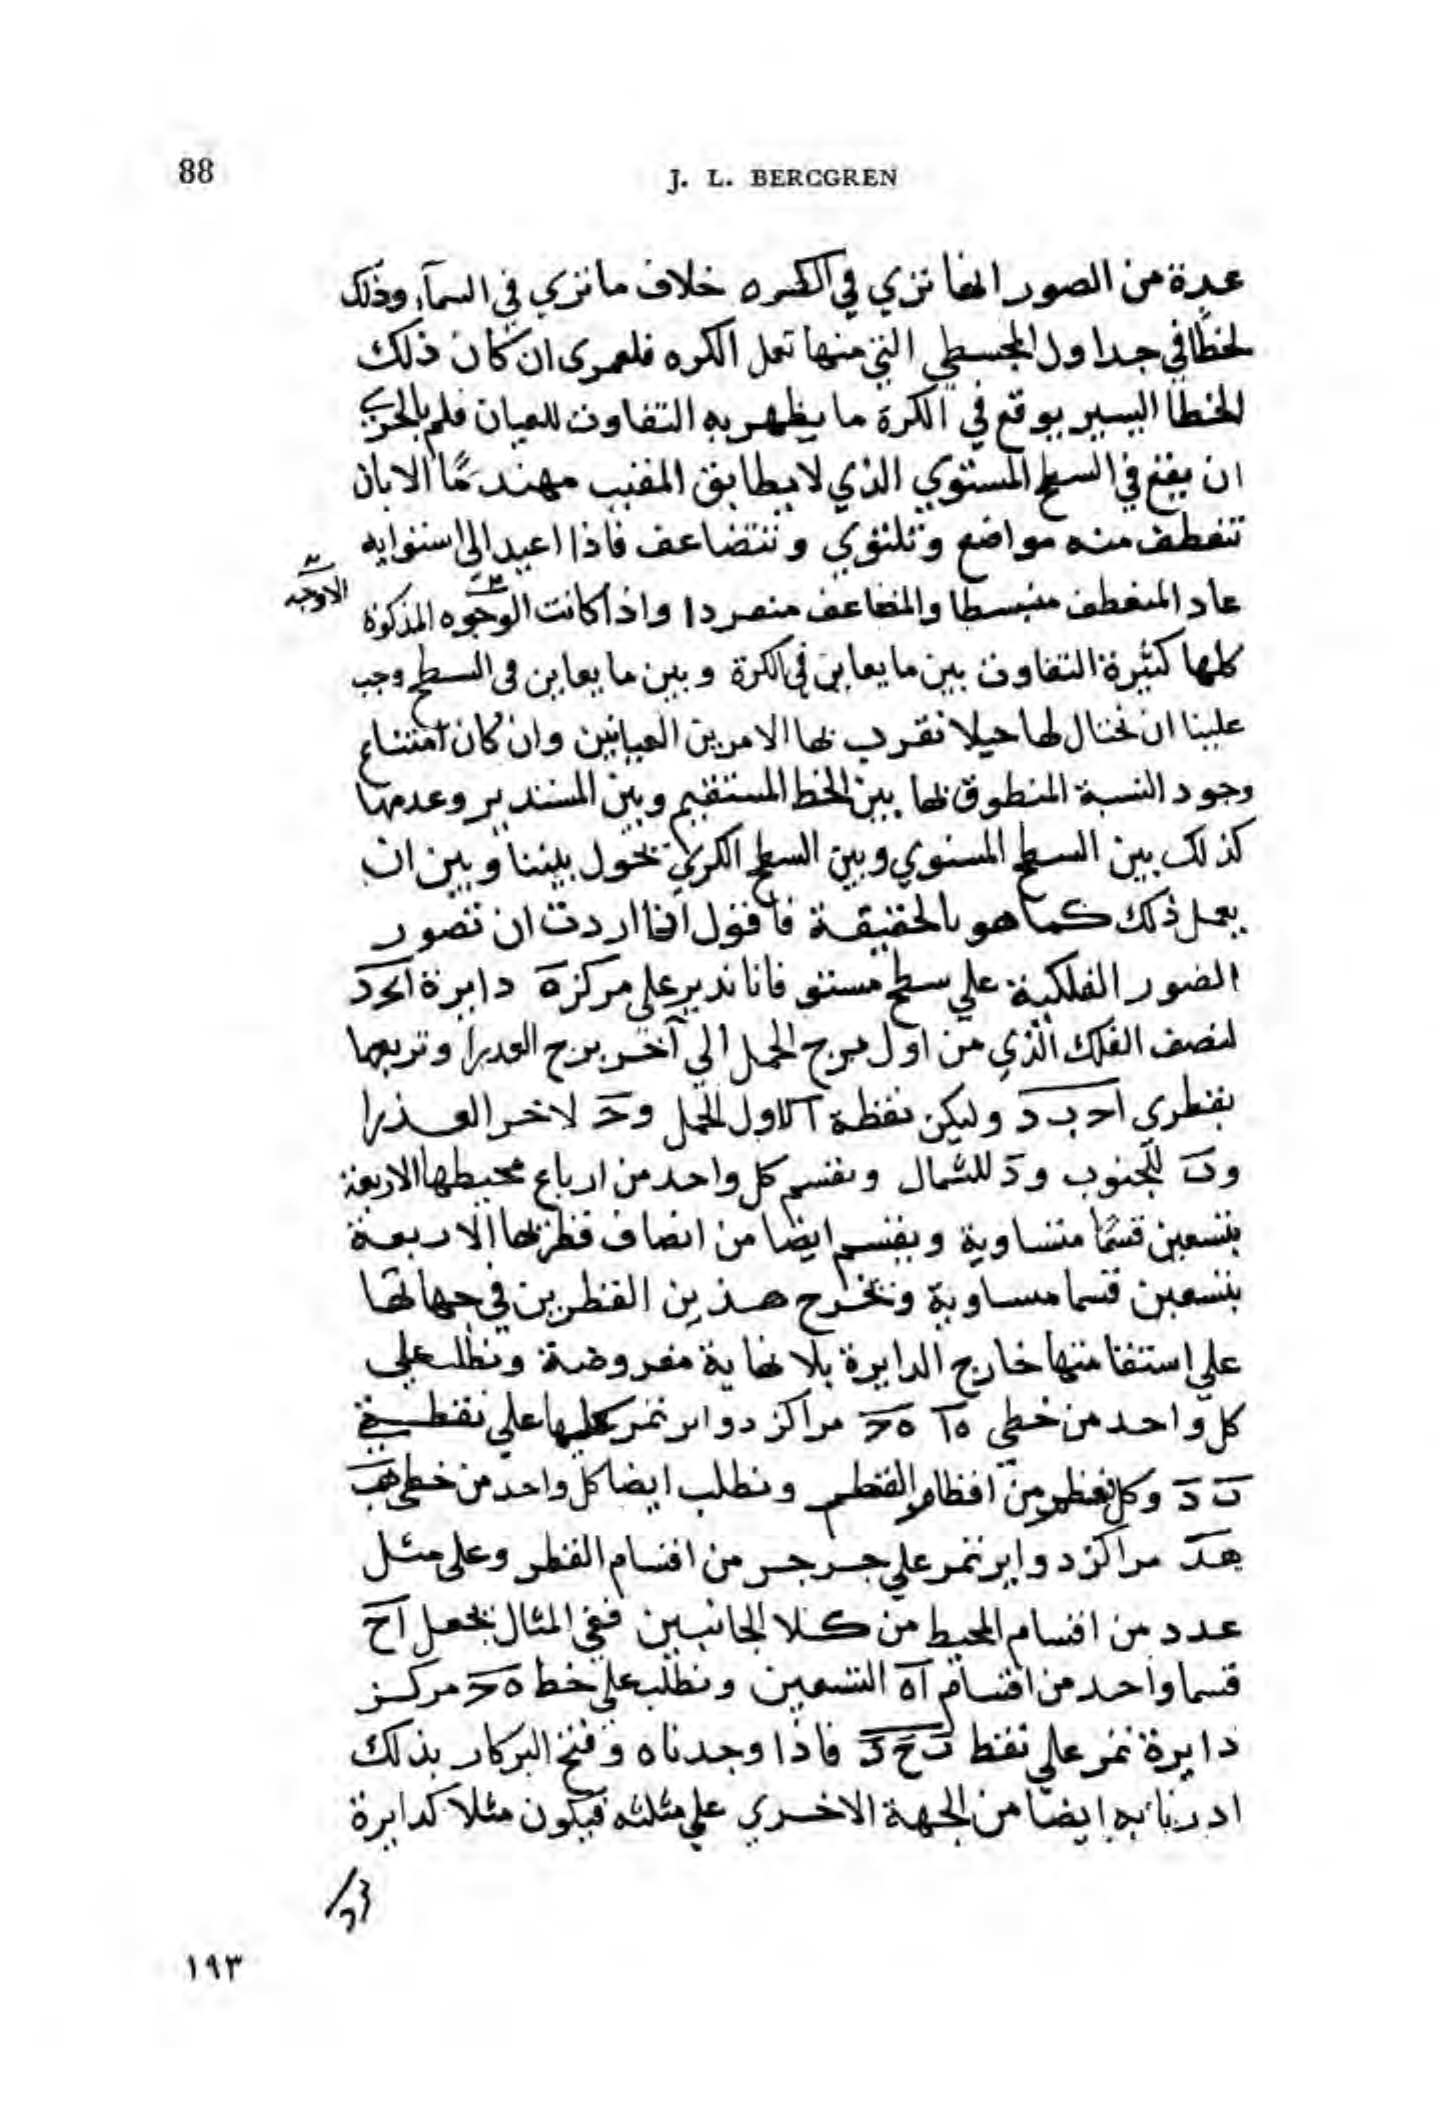 88
J. L. BERCGREN
عدة من الصور انها تري في الكره خلاف ما نري في السمآء وذلك
لخطأ في جداول المجسطي التي منها تعمل الكره فلعمري ان كان ذلك
الخطا اليسير يوقع في الكرة ما يظهر به التفاوت للعيان فلم بالحري
ان يقنع في السطح المستوي الذي لا يطابق المقبب مهندمًا الا بان
تنعطف منه مواضع وتلتوي وتتضاعف فاذا اعيد الى استوايه
عاد المنعطف منبسطا والمضاعف منصردا واذا كانت الوجوه المذكورة
الاوجه
كلها كثيرة التفاوت بين ما يعاين في الكرة وبين ما يعاين في السطح وجب
علينا ان نحتال لها حيلا نقرب بها الامرين العيانيين وان كان امتناع
وجود النسبة المنطوق بها بين الخط المستقيم وبين المستدير وعدمها
كذلك بين السطح المستوي وبين السطح الكري تحول بيننا وبين ان
يعمل ذلك كما هو بالحقيقة فاقول اذا اردت ان تصور
الصور الفلكية علي سطح مستو فانا ندير علي مركز ه دايرة ا ب ج د
لنصف الفلك الذي من اول برج الحمل الي آخر برج العذرا وتربعها
بقطري ا ج ب د وليكن نقطة ا لاول الحمل و ج لاخر العذرا
و ب للجنوب و د للشمال ونقسم كل واحد من ارباع محيطها الاربعة
بتسعين قسمًا متساوية ويقسم ايضا من انصاف قطريها الاربعة
بتسعين قسما مساوية ونخرج هذين القطرين في جهاتها
علي استقامتها خارج الدايرة بلا نهاية مفروضة ونطلب علي
كل واحد من خطي ه ا ه ج مراكز دواير تمر كلها علي نقطتي
ب د وكل من اقطار القطر ونطلب ايضا كل واحد من خطي ه ب
ه د مراكز دواير تمر علي جز جز من اقسام القطر وعلى مثل
عدد من اقسام المحيط من كلا الجانبين ففي المثال نجعل ا ح
قسما واحد من اقسام ا ه التسعين ونطلب علي خط ه ج مركز
دايرة تمر علي نقط ب ح د فاذا وجدناه وفتح البركار بذلك
ادرنا به ايضا من الجهة الاخري علي مثلثه فيكون مثلا كدايرة
١٩٣